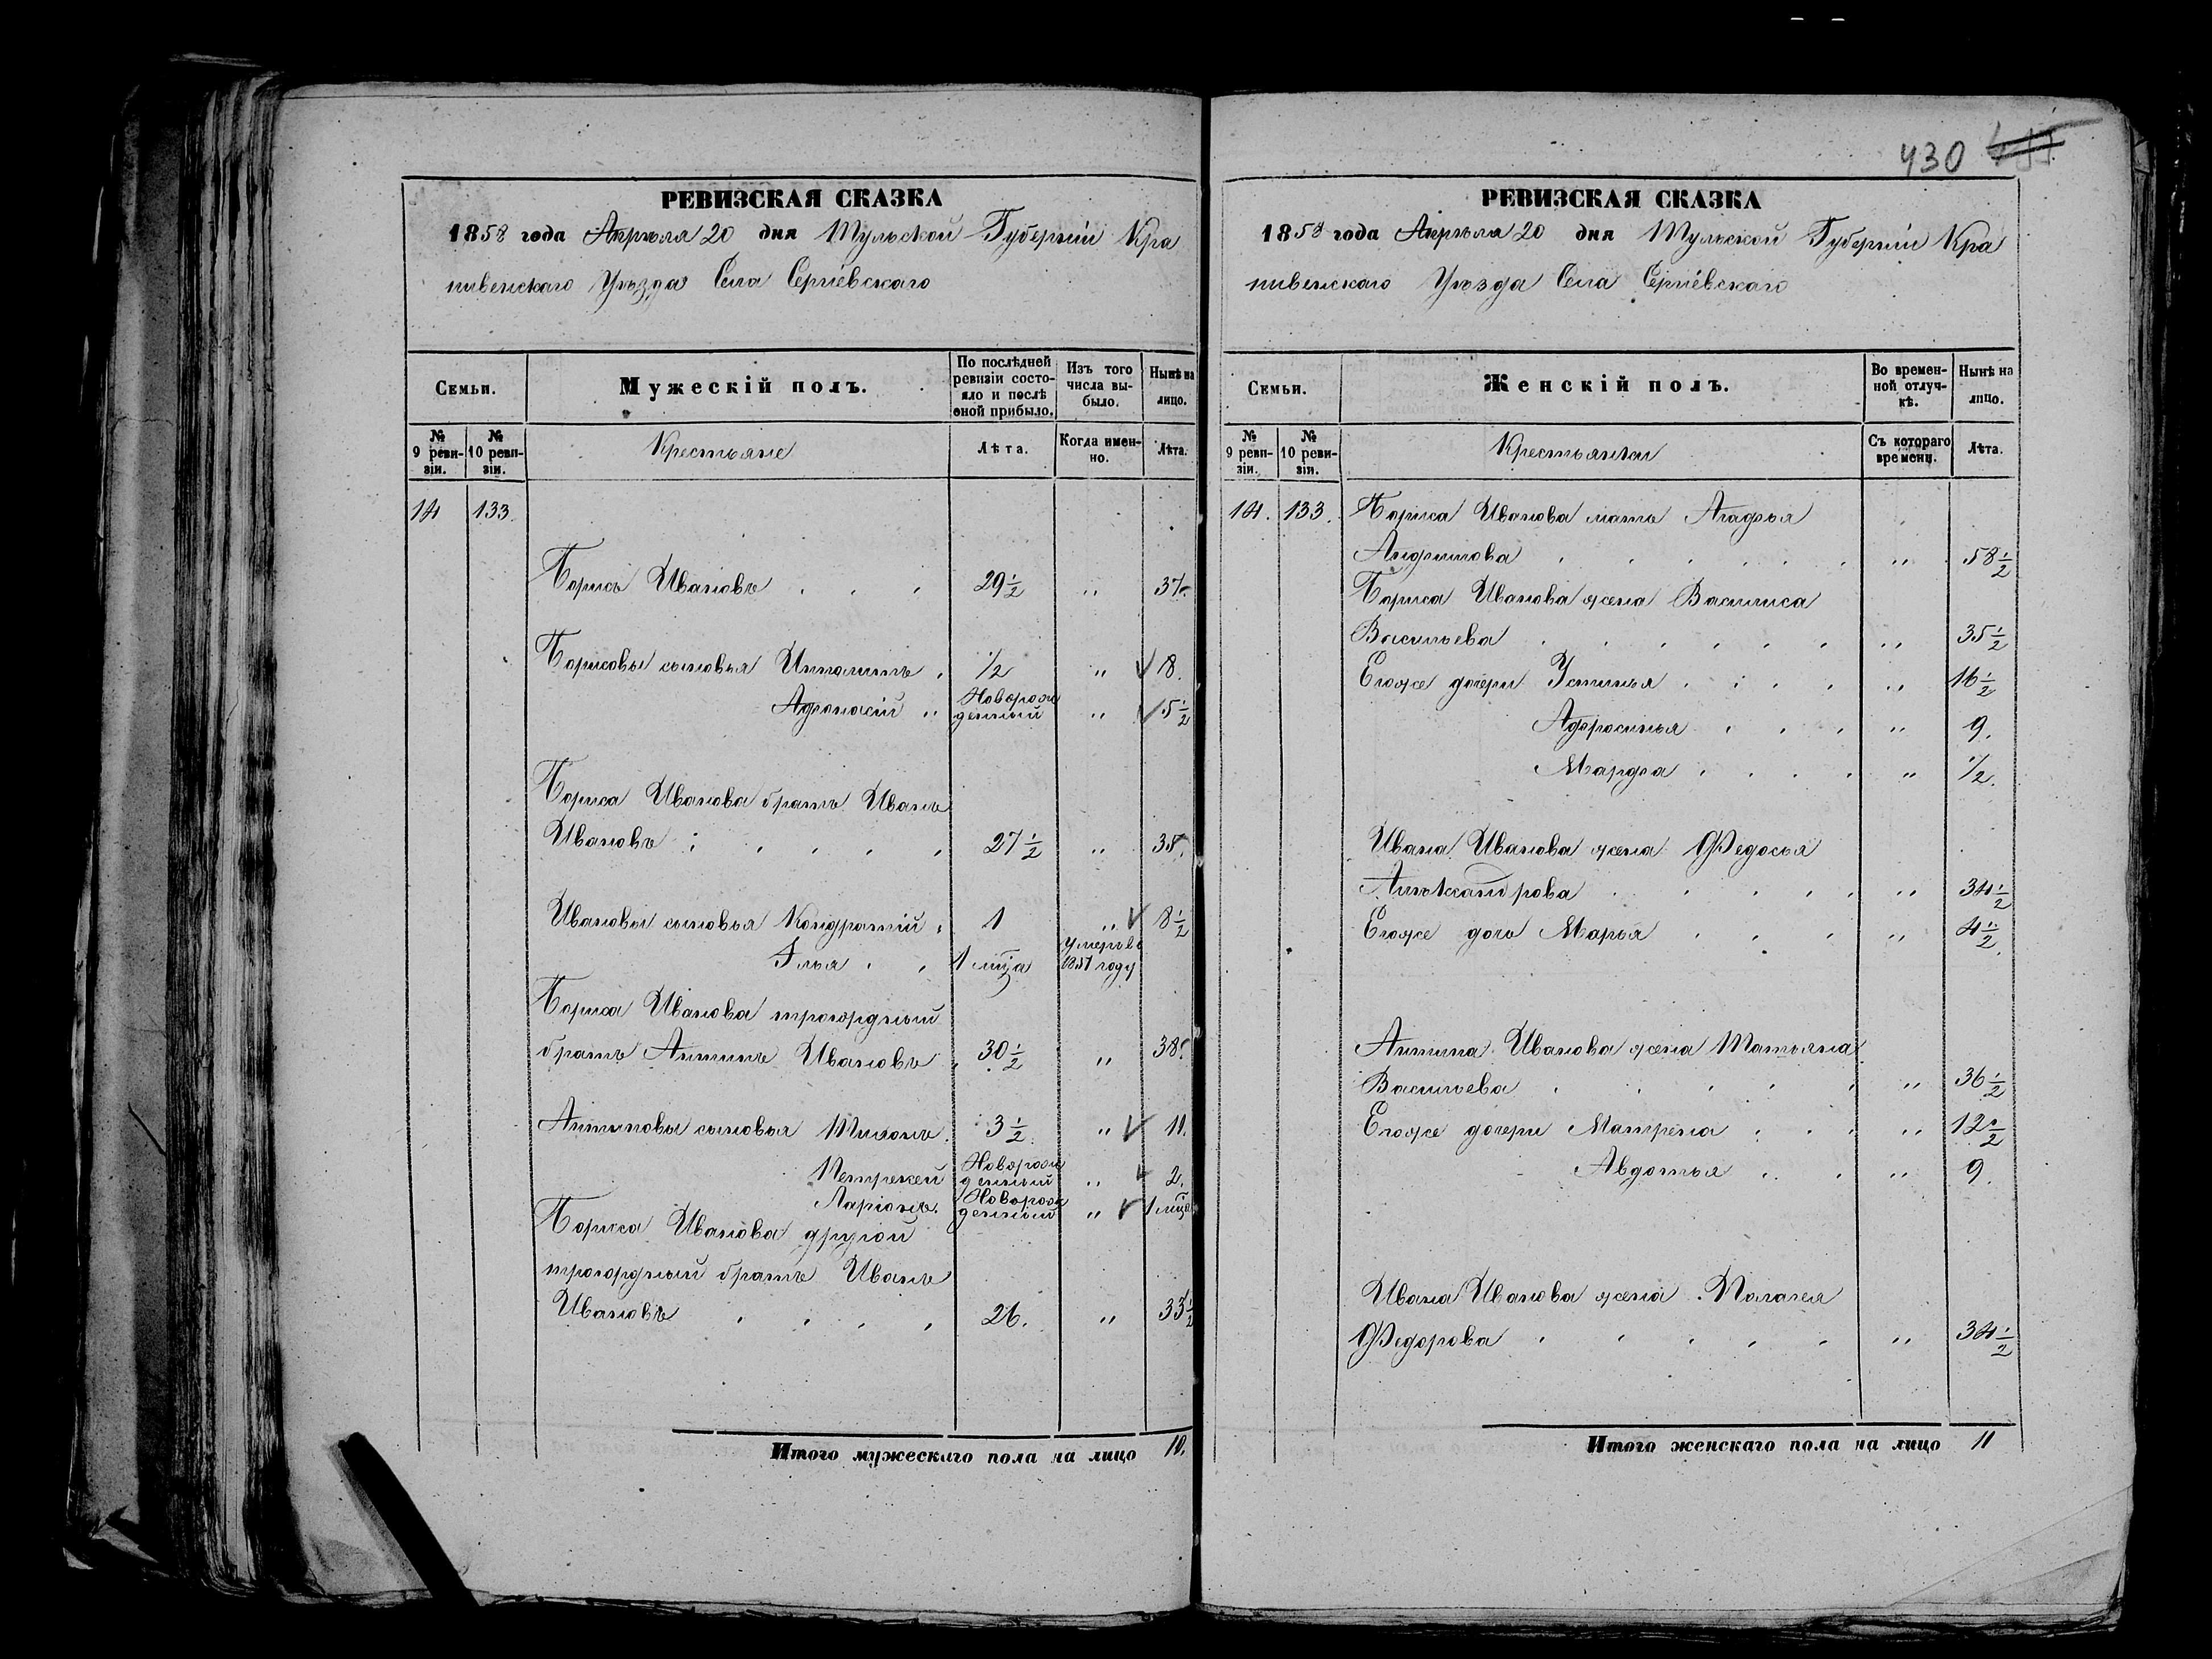 430
РЕВИЗСКАЯ СКАЗКА
1858 года Апрѣля 20 дня Тульской Губерніи Кра
пивенскаго Уѣзда Села Сергіевскаго
Семьи.
Мужескій полъ.
По послѣдней ревизіи состояло и послѣ оной прибыло.
Изъ того числа выбыло.
Нынѣ на лицо.
№ 9 ревизіи.
№ 10 ревизіи.
Крестьяне
Лѣта.
Когда именно.
Лѣта.
14 133.
Борисъ Ивановъ 29½ " 37.
Борисовы сыновья Ипполитъ ½ " 8.
Афонасій " Новорожденный " 5½
Бориса Иванова братъ Иванъ
Ивановъ 27½ " 35.
Ивановы сыновья Кондратій 1 " 8½
Илья 1 мца умеръ въ 1851 году
Бориса Иванова троюродный
братъ Антипъ Ивановъ 30½ " 38.
Антиповы сыновья Тихонъ 3½ " 11.
Петрекей Новорожденный " 2.
Ларіонъ. Новорожденный " 1 мца
Бориса Иванова другой
троюродный братъ Иванъ
Ивановъ 26. " 33½
Итого мужескаго пола на лицо 10.
РЕВИЗСКАЯ СКАЗКА
1858 года Апрѣля 20 дня Тульской Губерніи Кра
пивенскаго Уѣзда Села Сергіевскаго
Семьи.
Женскій полъ.
Во временной отлучкѣ.
Нынѣ на лицо.
№ 9 ревизіи.
№ 10 ревизіи.
Крестьянки
Съ котораго времени.
Лѣта.
14. 133. Бориса Иванова мать Агафья
" 58½
Бориса Иванова жена Василиса
Васильева " 35½
Егоже дочери Устинья " 16½
Афросинья " 9.
Марфа " ½.
Ивана Иванова жена Федосья
Алѣксандрова " 34½
Егоже дочь Марья " 4½
Антипа Иванова жена Татьяна
Васильева " 36½
Егоже дочери Матрена " 12½
Авдотья " 9.
Ивана Иванова жена Палагея
Федорова " 34½
Итого женскаго пола на лицо 11